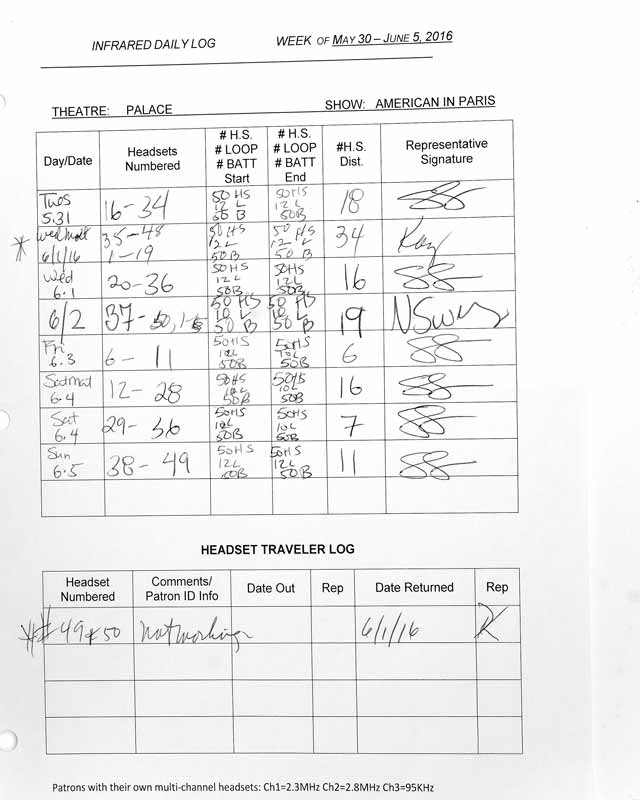 INFRARED DAILY LOG WEEK OF MAY 30 – JUNE 5, 2016
THEATRE: PALACE SHOW: AMERICAN IN PARIS
Day/Date Headsets Numbered # H.S. # LOOP # BATT Start # H.S. # LOOP # BATT End #H.S. Dist. Representative Signature
Tues 5.31 16-34 50 HS 12 L 50 B 50HS 12 L 50B 18
* Wed Mat 6/1/16 35-48 1-19 50 HS 12L 50B 50 HS 12 L 50 B 34 Kay
Wed 6.1 20-36 50HS 12L 50B 50HS 12L 50B 16
6/2 37-50, 50 HS 10 L 50 B 50 HS 10 L 50 B 19
Fri 6.3 6-11 50HS 10L 50B 50HS 10L 50B 6
Sat Mat 6.4 12-28 50HS 10L 50B 50HS 10L 50B 16
Sat 6.4 29-36 50HS 10L 50B 50HS 10L 50B 7
Sun 6.5 38-49 50HS 12L 50B 50HS 12L 50B 11
HEADSET TRAVELER LOG
Headset Numbered Comments/ Patron ID Info Date Out Rep Date Returned Rep
* #49 & 50 not working 6/1/16 K
Patrons with their own multi-channel headsets: Ch1=2.3MHz Ch2=2.8MHz Ch3=95KHz